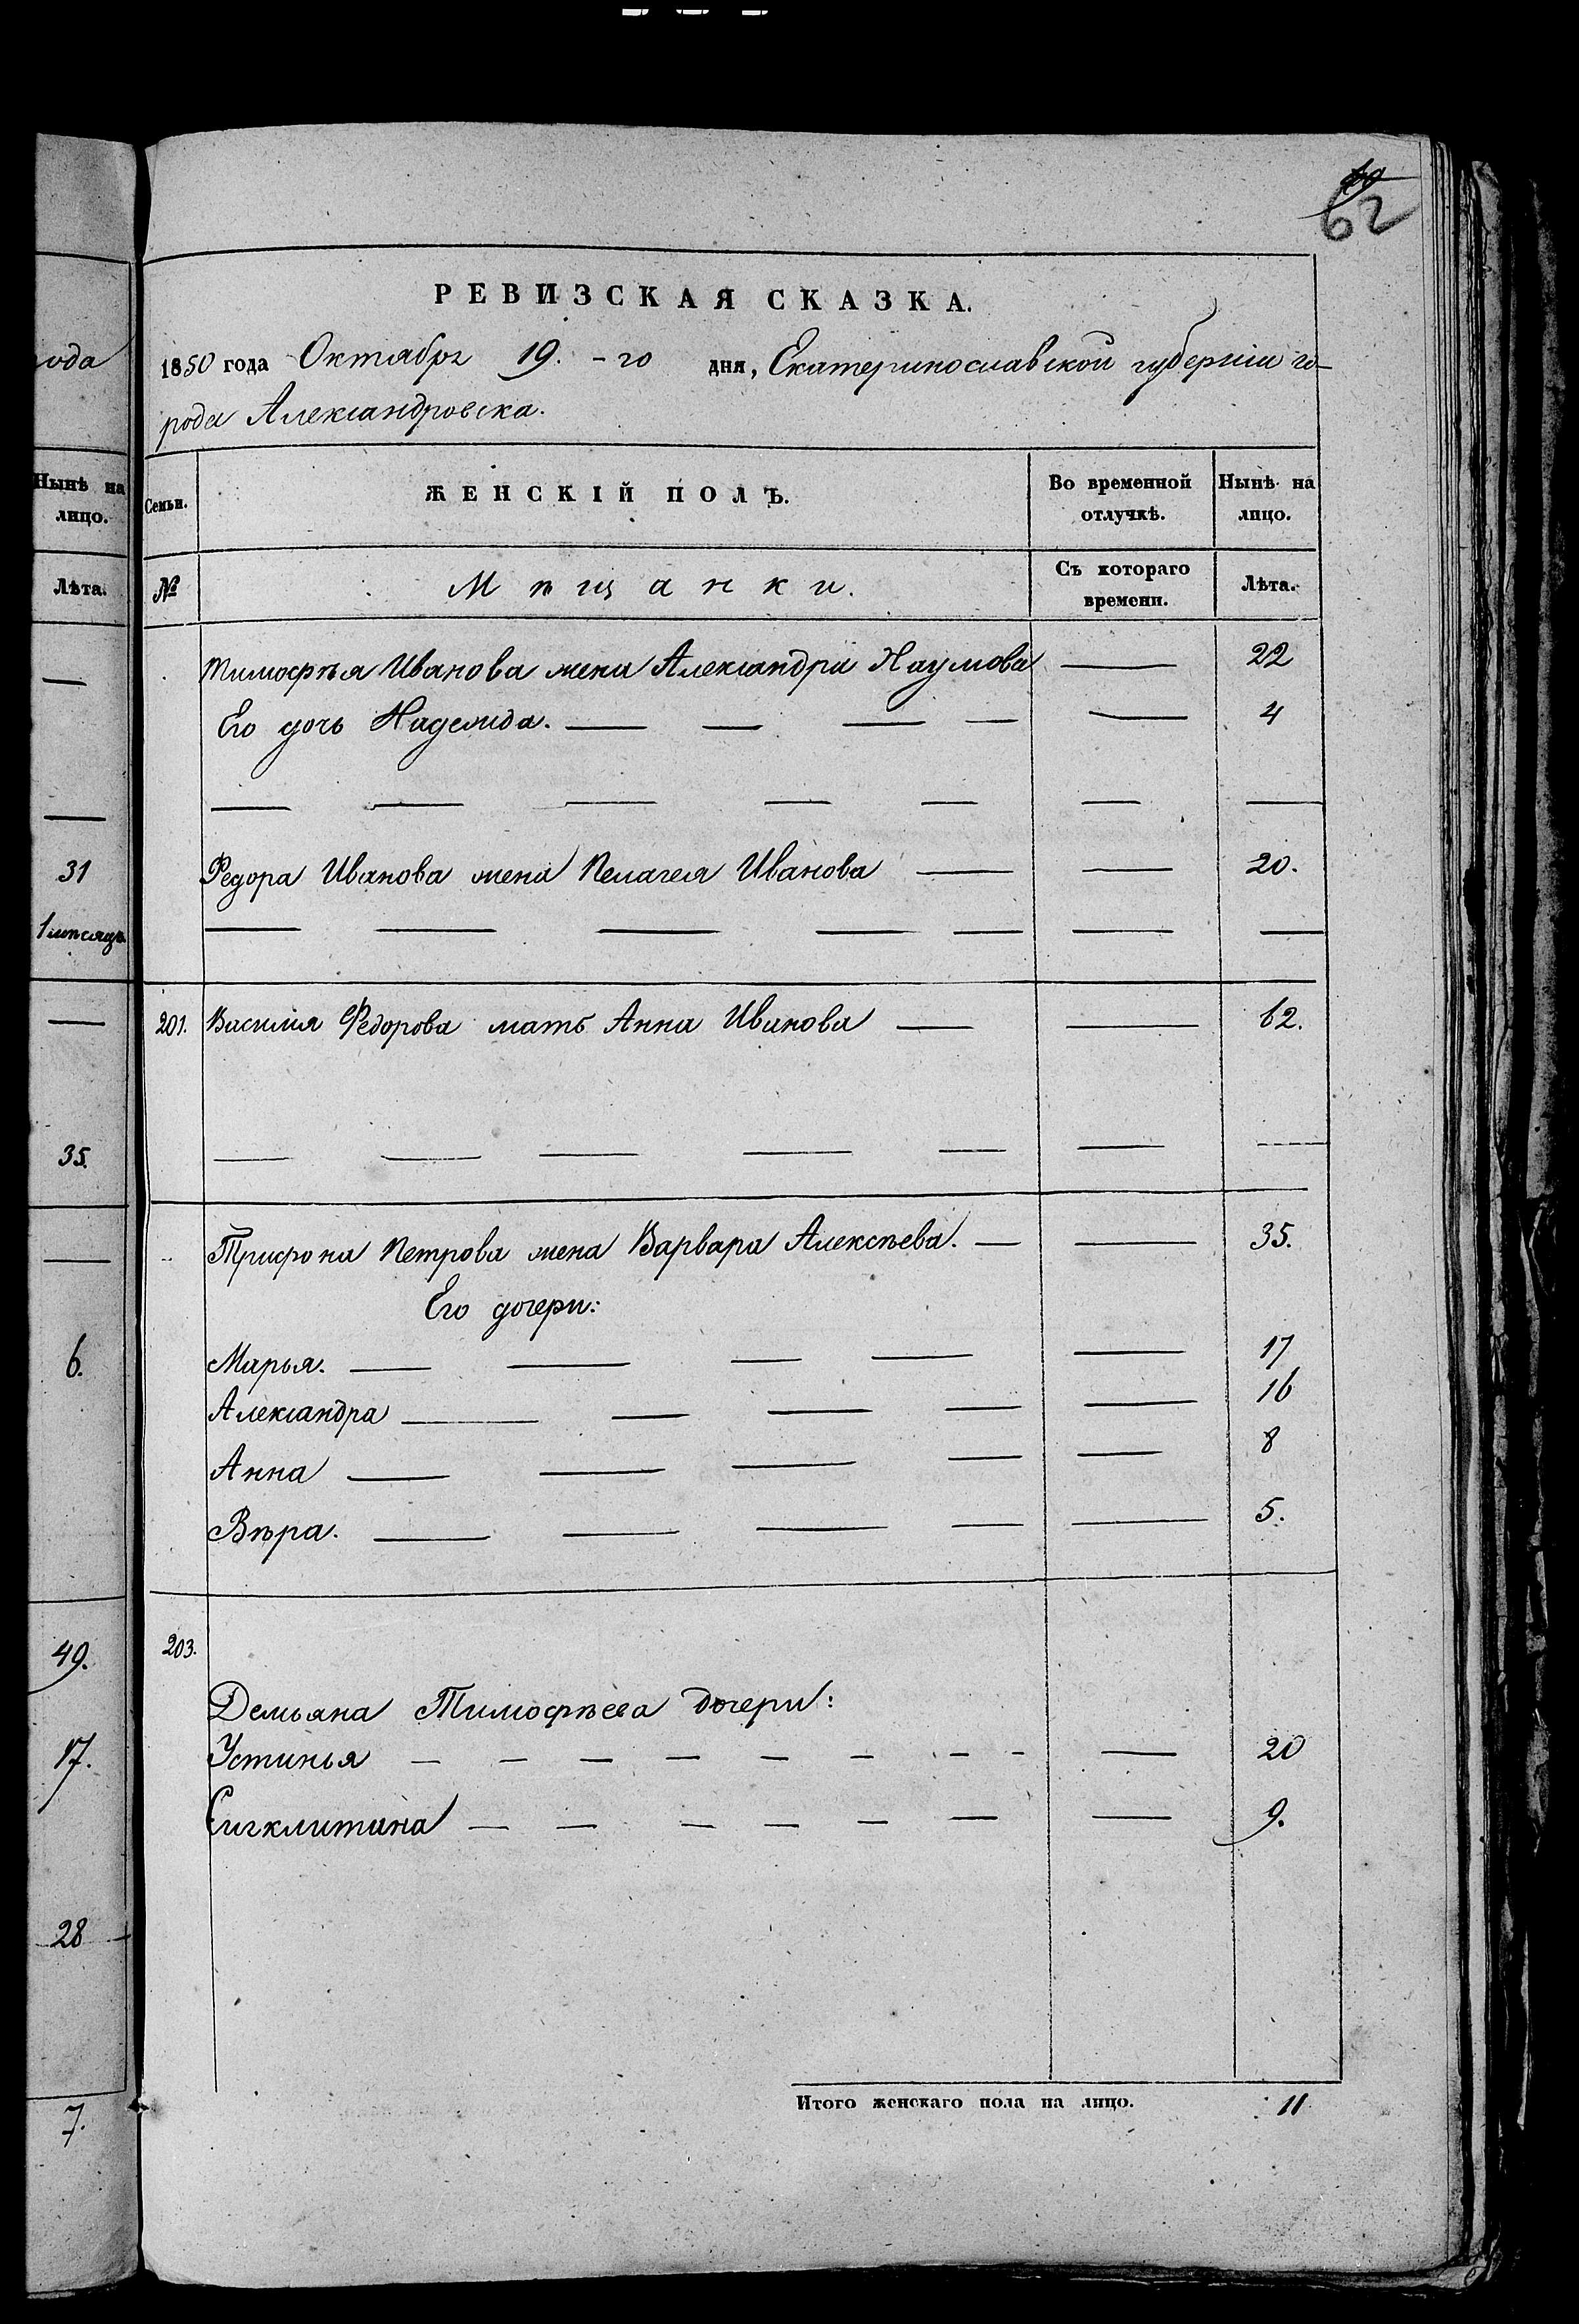 62
РЕВИЗСКАЯ СКАЗКА.
1850 года Октября 19.-го дня, Екатеринославской губерніи го-
рода Александровска.
Семьи. ЖЕНСКІЙ ПОЛЪ. Во временной отлучкѣ. Нынѣ на лицо.
№ Мѣщанки. Съ котораго времени. Лѣта.
Тимофѣя Иванова жена Александра Наумова — 22
Его дочь Надежда. — 4
Федора Иванова жена Пелагея Иванова — 20.
201. Василия Федорова мать Анна Иванова — 62.
Трифона Петрова жена Варвара Алексѣева. — 35.
Его дочери:
Марья. — 17
Александра — 16
Анна — 8
Вѣра. — 5.
203.
Демьяна Тимофѣева дочери:
Устинья — 20
Сигклитина — 9.
Итого женскаго пола на лицо. 11
рода
Нынѣ на
лицо.
Лѣта.
31
1 мѣсяцъ.
35.
6.
49.
17.
28
7.